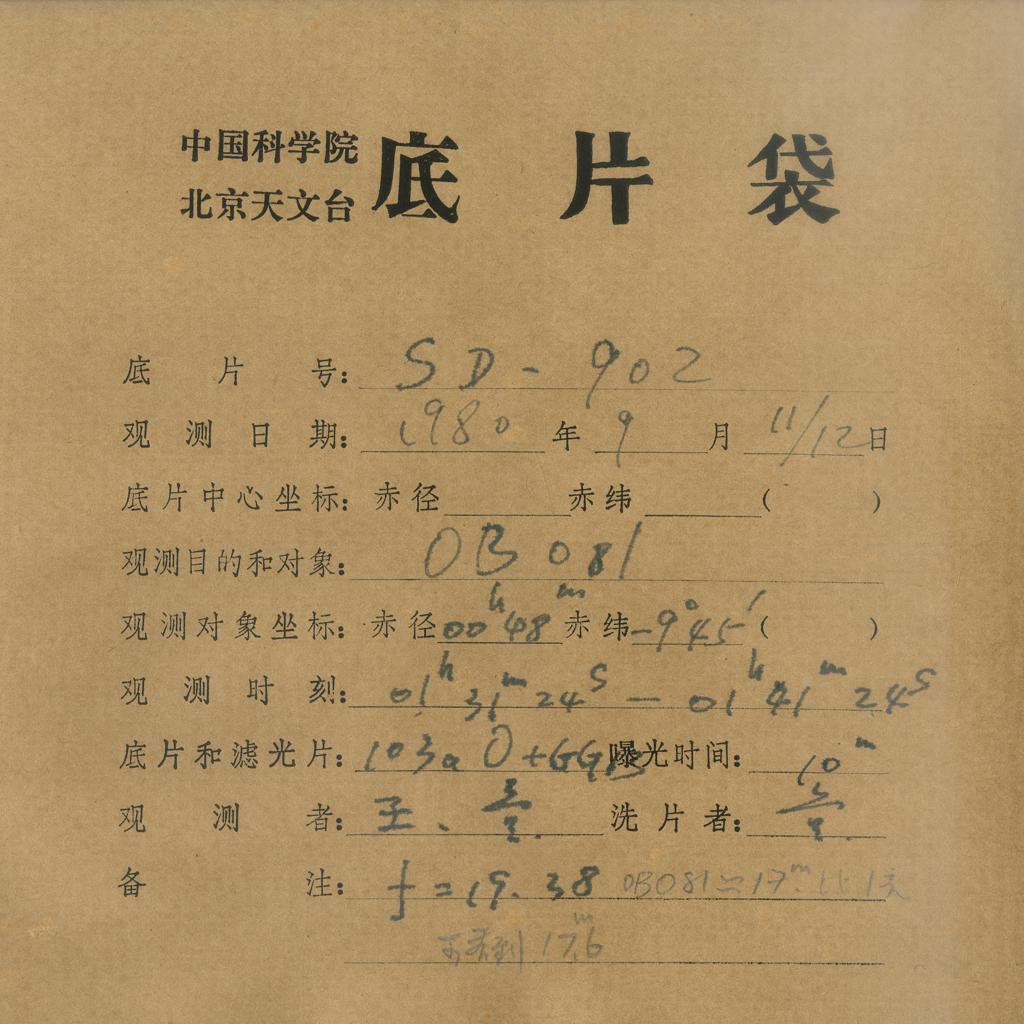 中国科学院
北京天文台
底片袋
底片号：SD-902
观测日期：1980年9月11/12日
底片中心坐标：赤径 赤纬 （ ）
观测目的和对象：OB 081
观测对象坐标：赤径00h48m赤纬-9°45′（ ）
观测时刻：01h31m24s—01h41m24s
底片和滤光片：103aO+GG13曝光时间：10m
观测者：王、 洗片者：
备注：f=19.38 OB081≃17m 比1天
可看到17.6m